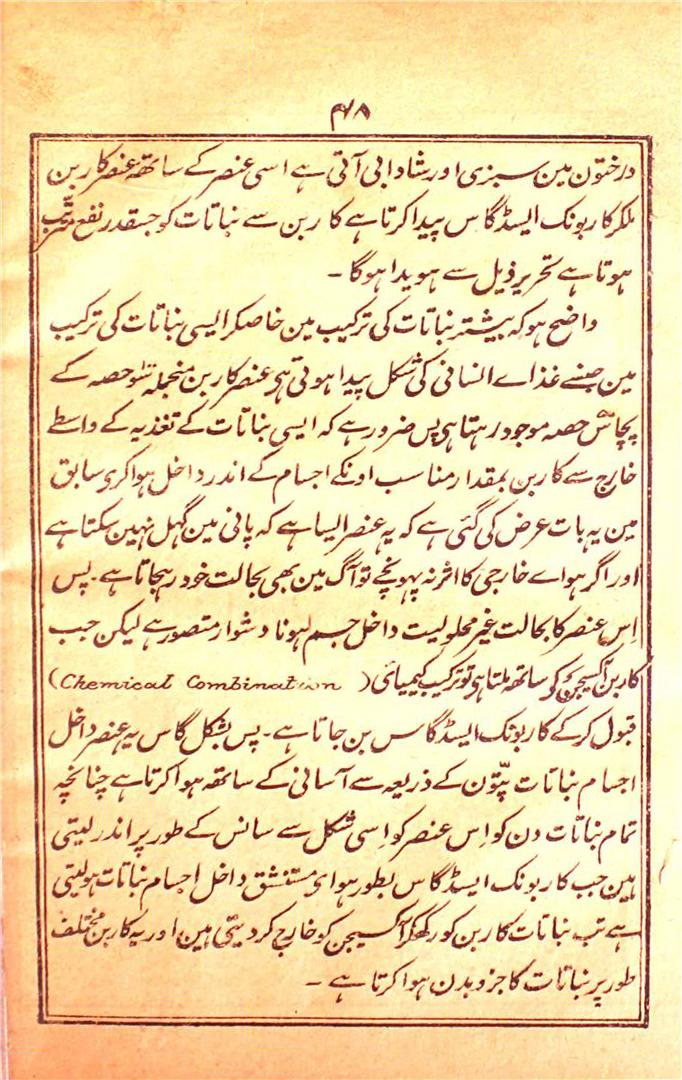 ۴۶۸
درختون مین سبزی اور شادابی آتی ہے اسی عنصر کے ساتھ عنصر کاربن
ملکر کاربونک ایسڈ گاس پیدا کرتا ہے کاربن سے نباتات کو جسقدر نفع مترتب
ہوتا ہے تحریر ذیل سے ہویدا ہوگا ۔
واضح ہو کہ بیشتر نباتات کی ترکیب مین خاصکر ایسی نباتات کی ترکیب
مین جنسے غذاے انسانی کی شکل پیدا ہوتی ہی عنصر کاربن منجملہ سو حصہ کے
پچاس حصہ موجود رہتا ہی پس ضرور ہے کہ ایسی نباتات کے تغذیہ کے واسطے
خارج سے کاربن بمقدار مناسب اونکے اجسام کے اندر داخل ہوا کری سابق
مین یہ بات عرض کی گئی ہے کہ یہ عنصر ایسا ہے کہ پانی مین گہل نہین سکتا ہے
اور اگر ہواے خارجی کا اثر نہ پہونچے تو آگ مین بھی بحالت خود رہجاتا ہے ۔ پس
اِس عنصر کا بحالت غیر محلولیت داخل جسم ہونا دشوار متصور ہے لیکن جب
کاربن آکسیجن کو ساتھ ملتا ہی تو ترکیب کیمیائی ( Chemical Combination )
قبول کر کے کاربونک ایسڈ گاس بن جاتا ہے ۔ پس بشکل گاس یہ عنصر داخل
اجسام نباتات پتّون کے ذریعہ سے آسانی کے ساتھ ہوا کرتا ہے چنانچہ
تمام نباتات دن کو اِس عنصر کو اِسی شکل سے سانس کے طور پر اندر لیتی
ہین جب کاربونک ایسڈ گاس بطور ہواے مستنشق داخل اجسام نباتات ہولیتی
ہے تب نباتات کاربن کو رکھکر آکسیجن کو خارج کر دیتی ہین اور یہ کاربن مختلف
طور پر نباتات کا جزو بدن ہوا کرتا ہے ۔